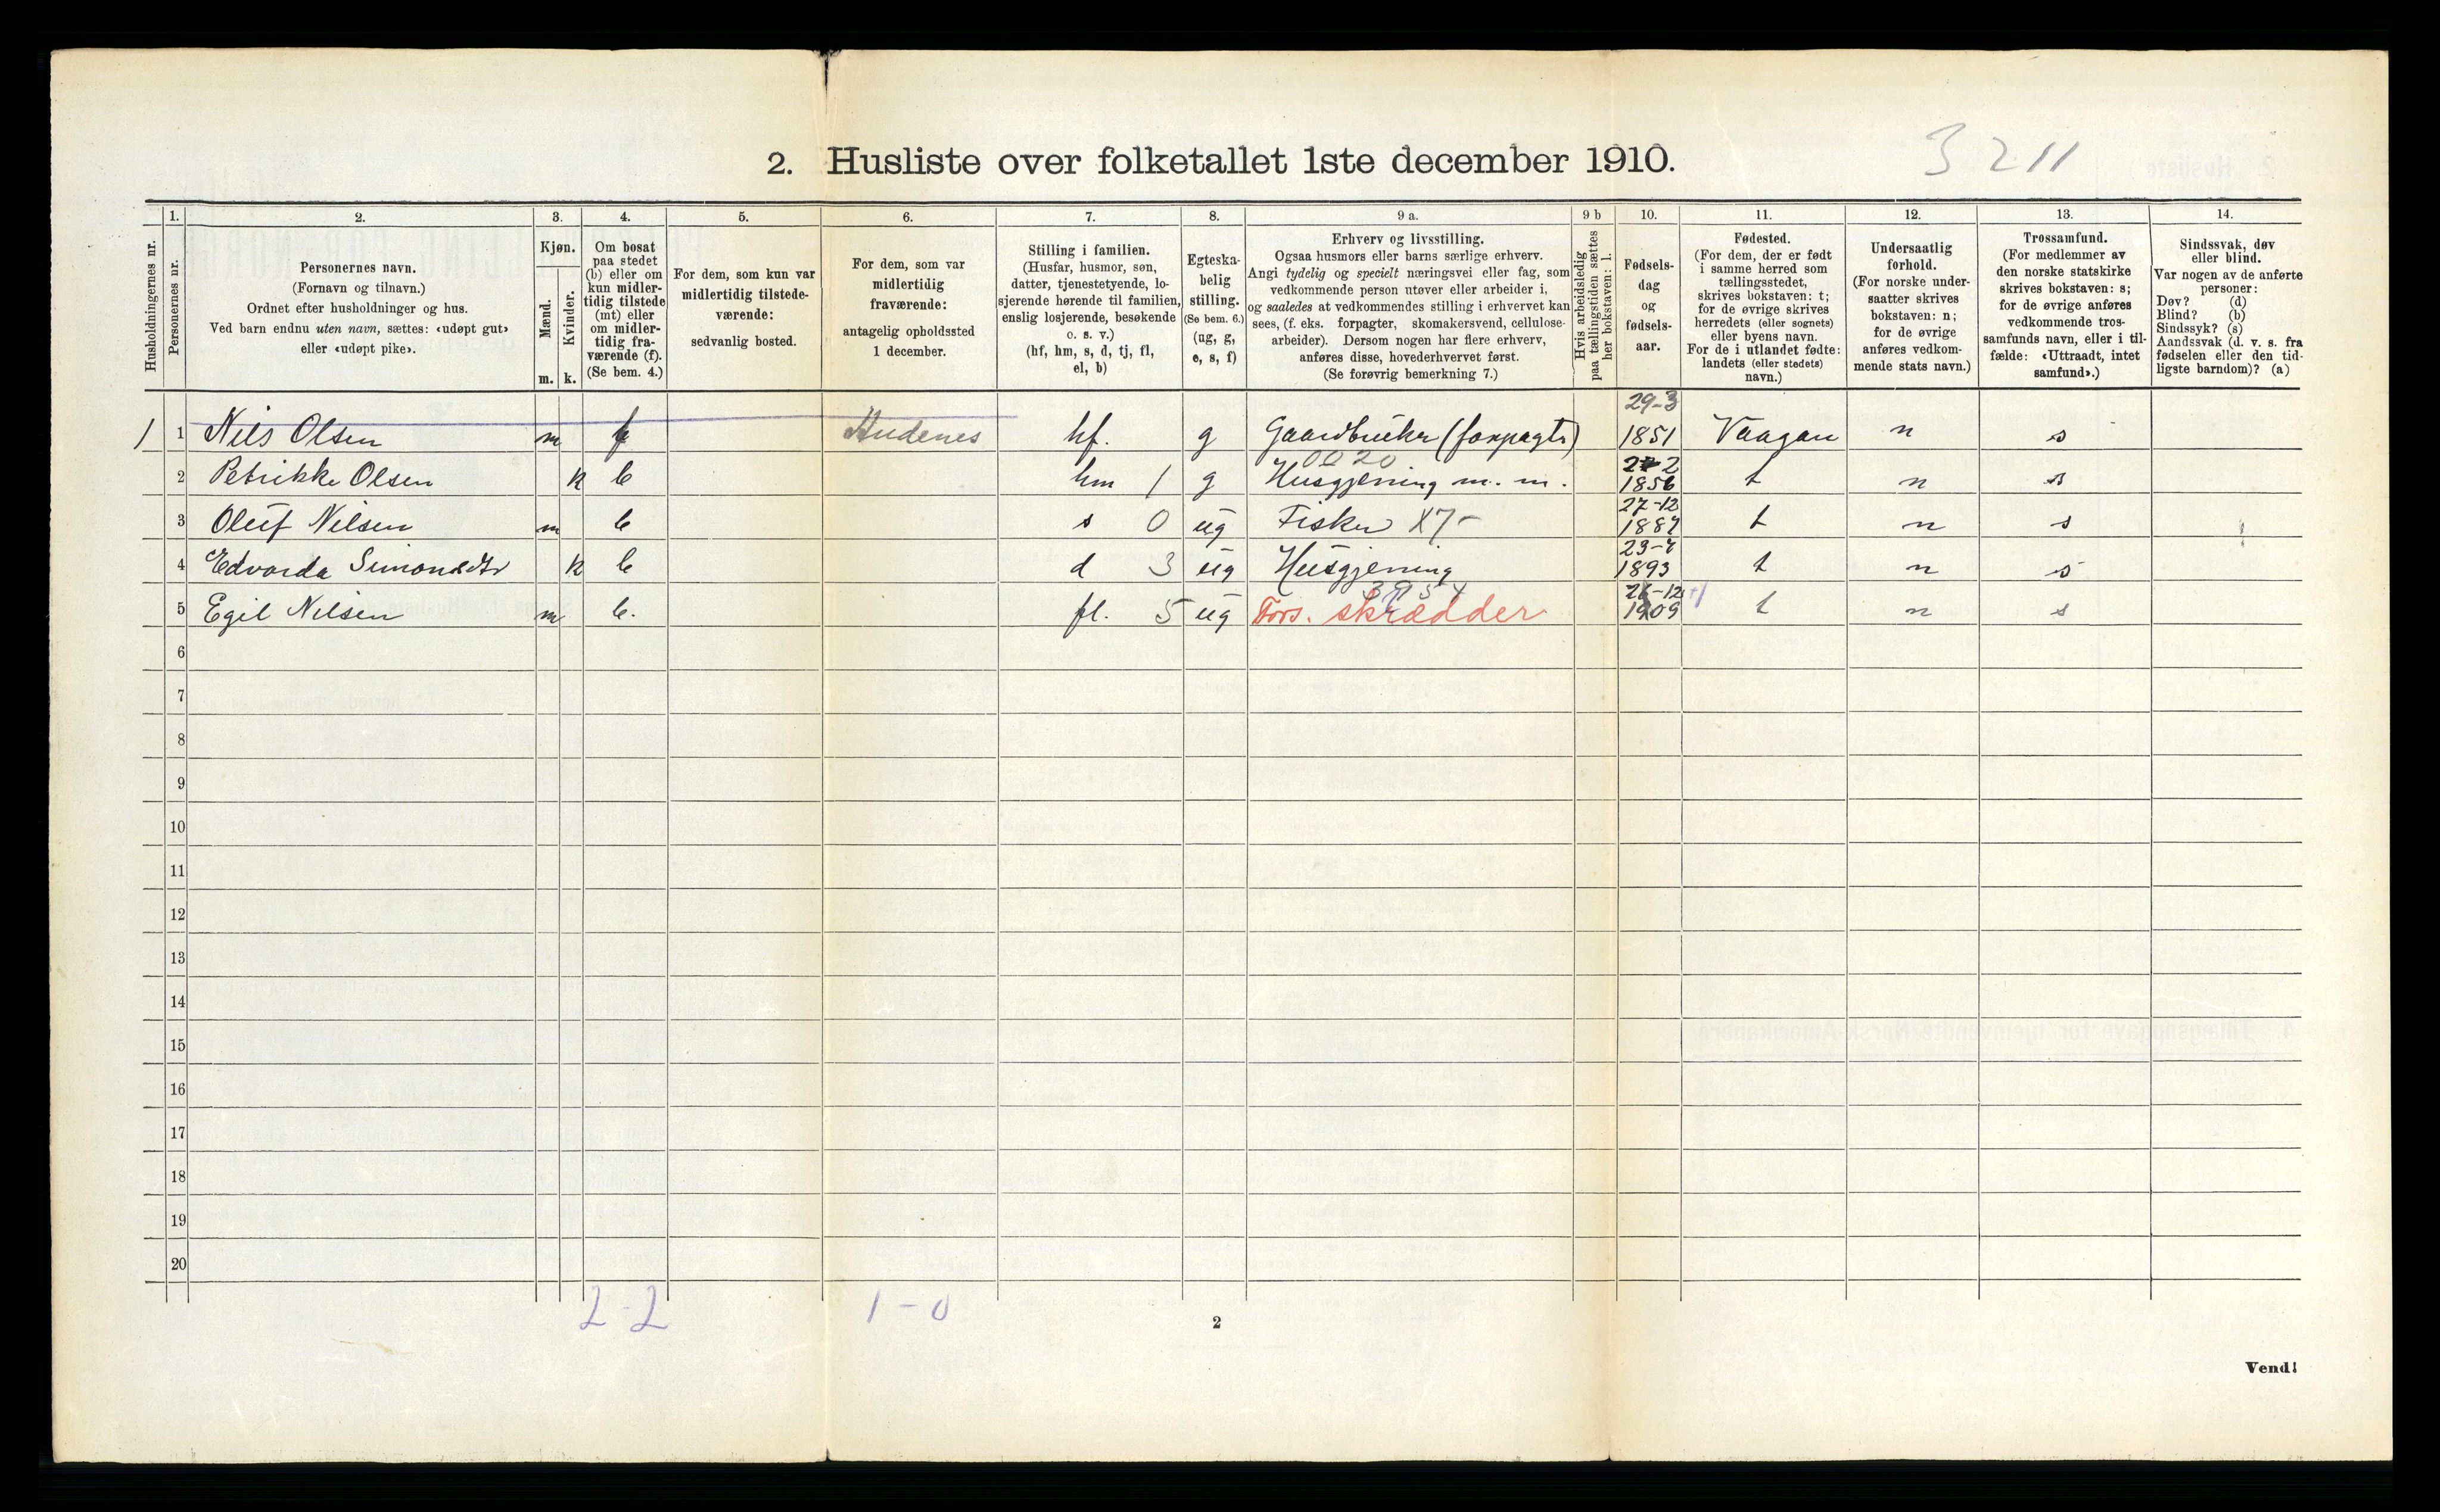 2. Husliste over folketallet 1ste december 1910.
3211
Husholdningernes nr.
1.
Personernes nr.
2.
Personernes navn.
(Fornavn og tilnavn.)
Ordnet efter husholdninger og hus.
Ved barn endnu uten navn, sættes: «udøpt gut»
eller «udøpt pike».
3.
Kjøn.
Mænd.
Kvinder.
m. k.
4.
Om bosat
paa stedet
(b) eller om
kun midler-
tidig tilstede
(mt) eller
om midler-
tidig fra-
værende (f).
(Se bem. 4.)
5.
For dem, som kun var
midlertidig tilstede-
værende:
sedvanlig bosted.
6.
For dem, som var
midlertidig
fraværende:
antagelig opholdssted
1 december.
7.
Stilling i familien.
(Husfar, husmor, søn,
datter, tjenestetyende, lo-
sjerende hørende til familien,
enslig losjerende, besøkende
o. s. v.)
(hf, hm, s, d, tj, fl,
el, b)
8.
Egteska-
belig
stilling.
(Se bem. 6.)
(ug, g,
e, s, f)
9 a.
Erhverv og livsstilling.
Ogsaa husmors eller barns særlige erhverv.
Angi tydelig og specielt næringsvei eller fag, som
vedkommende person utøver eller arbeider i,
og saaledes at vedkommendes stilling i erhvervet kan
sees, (f. eks. forpagter, skomakersvend, cellulose-
arbeider). Dersom nogen har flere erhverv,
anføres disse, hovederhvervet først.
(Se forøvrig bemerkning 7.)
9 b
Hvis arbeidsledig
paa tællingstiden sættes
her bokstaven: l.
10.
Fødsels-
dag
og
fødsels-
aar.
11.
Fødested.
(For dem, der er født
i samme herred som
tællingsstedet,
skrives bokstaven: t;
for de øvrige skrives
herredets (eller sognets)
eller byens navn.
For de i utlandet fødte:
landets (eller stedets)
navn.)
12.
Undersaatlig
forhold.
(For norske under-
saatter skrives
bokstaven: n;
for de øvrige
anføres vedkom-
mende stats navn.)
13.
Trossamfund.
(For medlemmer av
den norske statskirke
skrives bokstaven: s;
for de øvrige anføres
vedkommende tros-
samfunds navn, eller i til-
fælde: «Uttraadt, intet
samfund».)
14.
Sindssvak, døv
eller blind.
Var nogen av de anførte
personer:
Døv? (d)
Blind? (b)
Sindssyk? (s)
Aandssvak (d. v. s. fra
fødselen eller den tid-
ligste barndom)? (a)
1 1 Nils Olsen m f hf. g Gaardbruker (forpagter) 29-3 1851 Vaagan n s
0020
2 Petrikke Olsen k b hm 1 g Husgjerning m. m. 1856 t n s
3 Oluf Nilsen m b s 0 ug Fisker X7- 27-12 1887 t n s
4 Edvarda Simonsdtr k b d 3 ug Husgjerning 1893 t n s
5 Egil Nilsen m b. fl. 5 ug Fors. skrædder 1909 t n s
6
7
8
9
10
11
12
13
14
15
16
17
18
19
20
2-2 1-0
2
Vend!